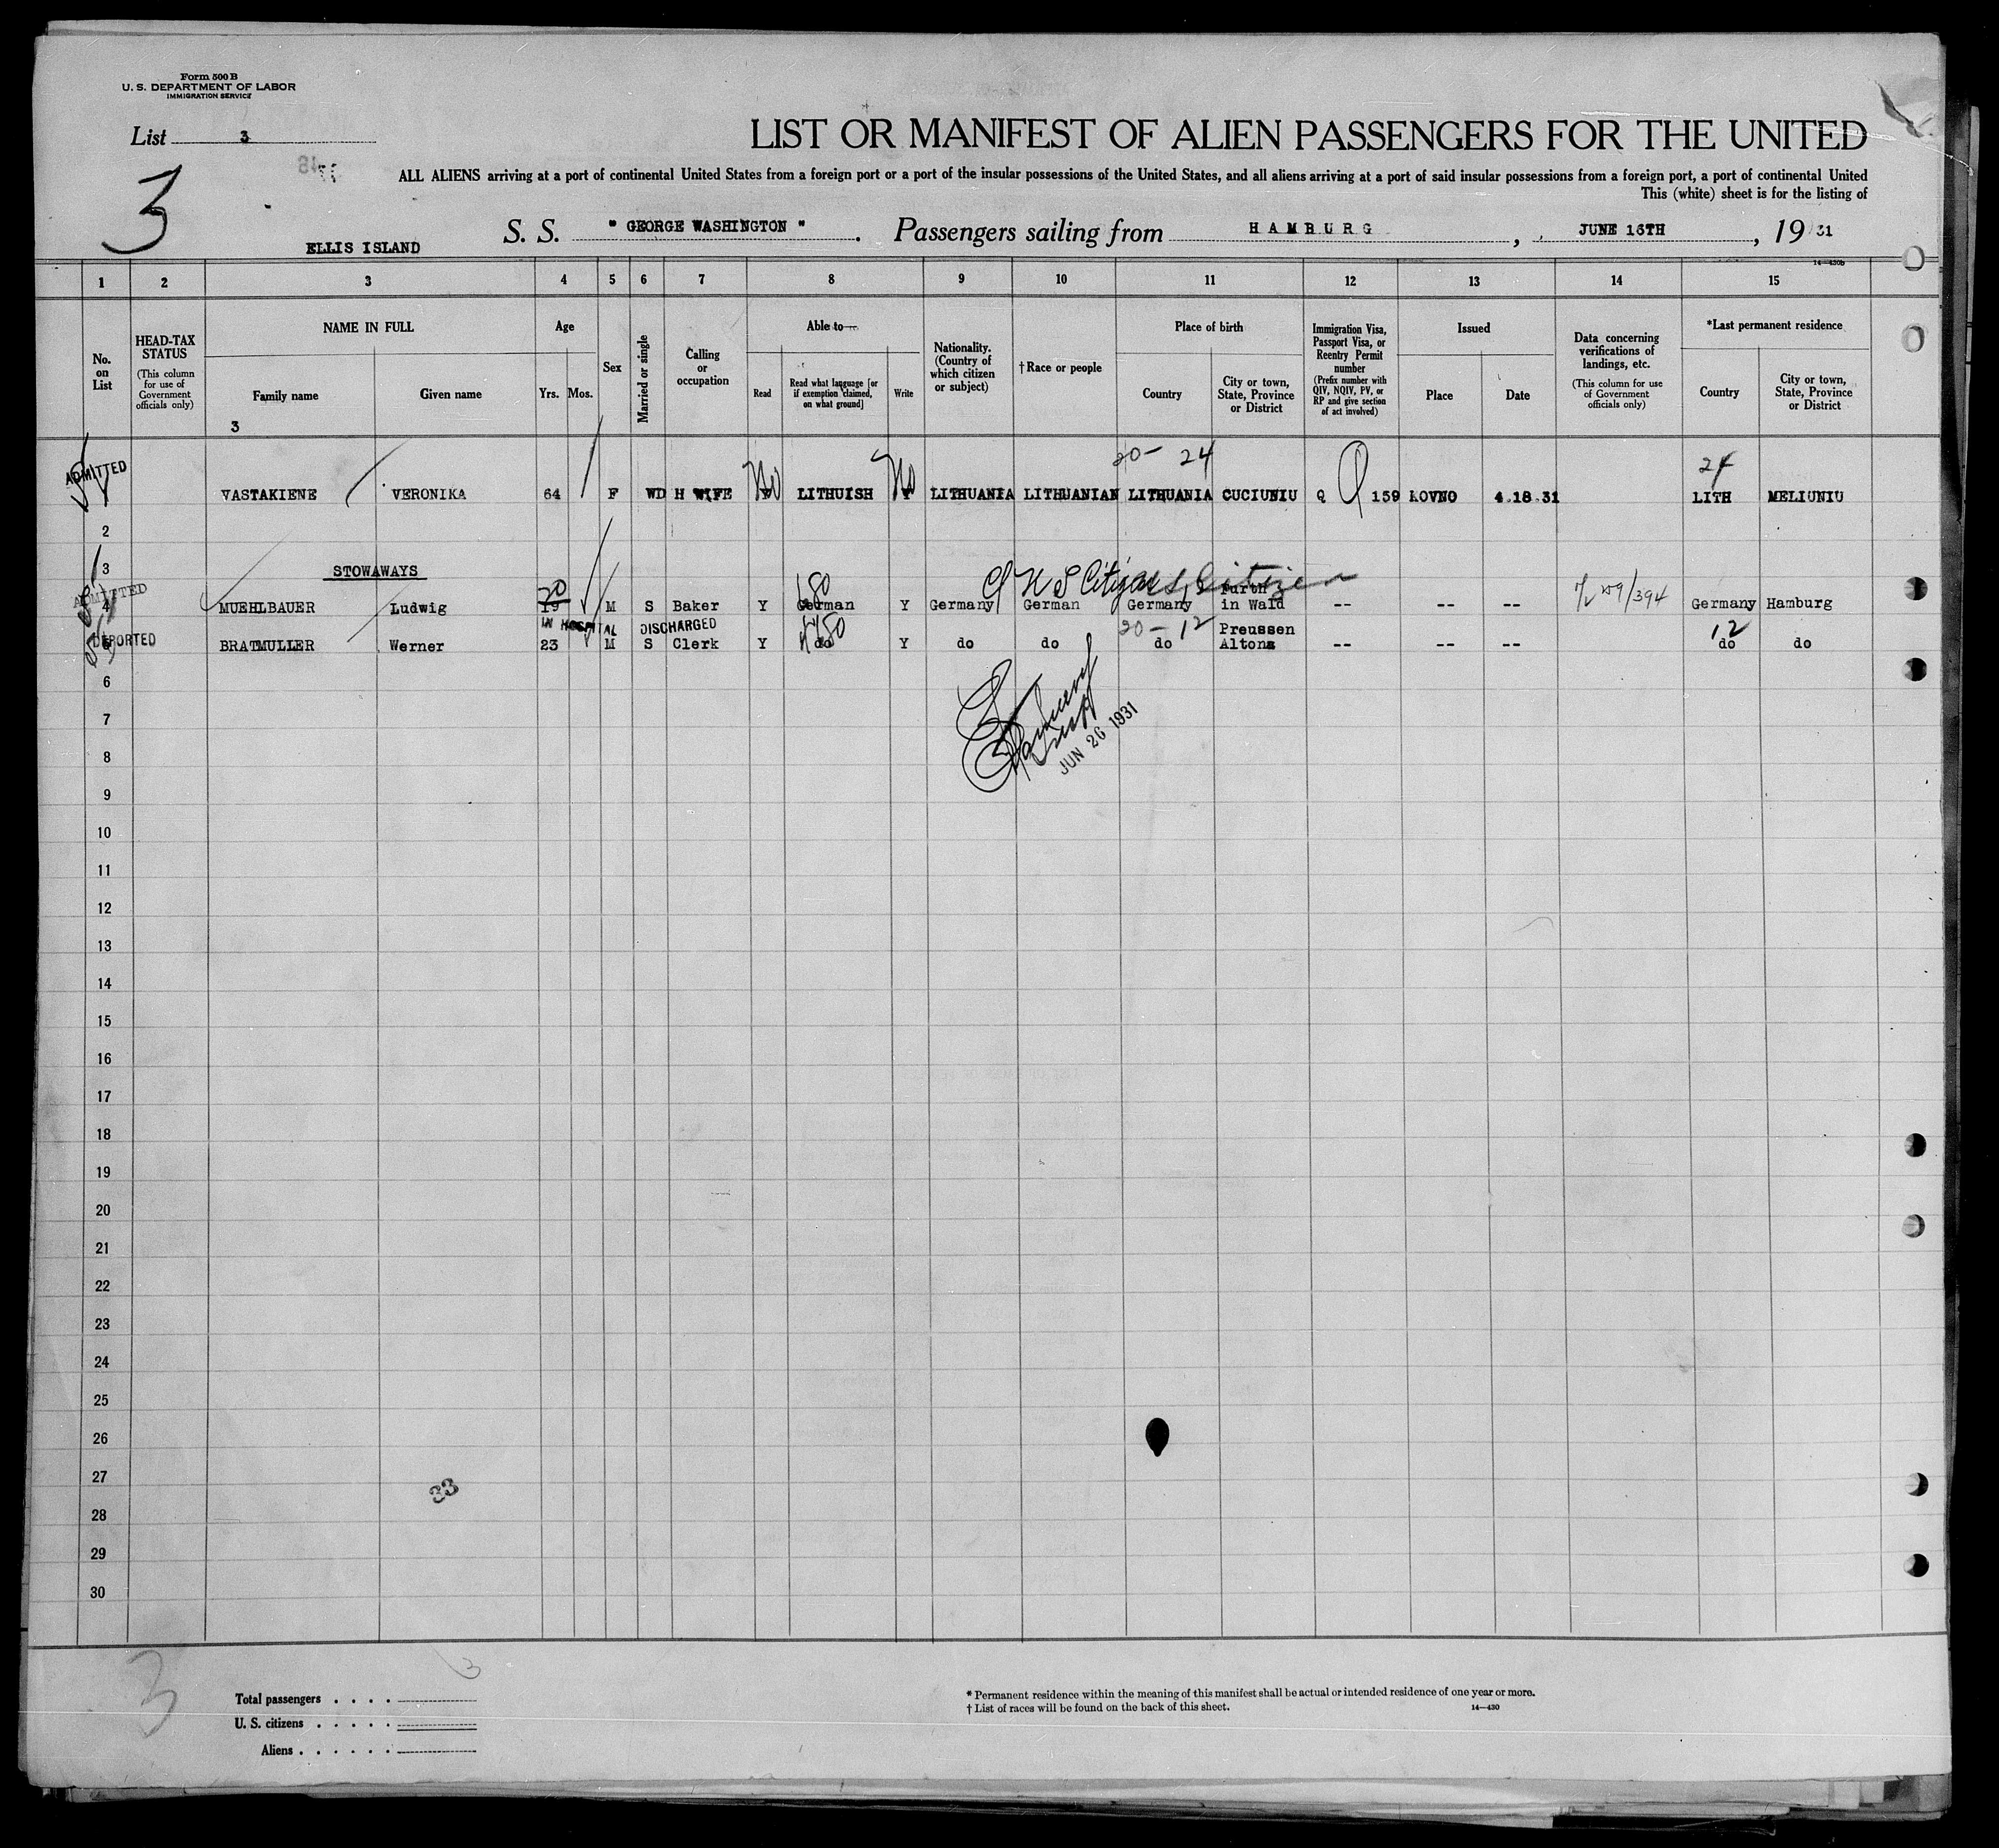 Form 500 B
U. S. DEPARTMENT OF LABOR
IMMIGRATION SERVICE
List 3
3
LIST OR MANIFEST OF ALIEN PASSENGERS FOR THE UNITED
ALL ALIENS arriving at a port of continental United States from a foreign port or a port of the insular possessions of the United States, and all aliens arriving at a port of said insular possessions from a foreign port, a port of continental United
This (white) sheet is for the listing of
ELLIS ISLAND
S. S. " GEORGE WASHINGTON ". Passengers sailing from HAMBURG, JUNE 16TH, 19 31
14—430b
1 2 3 4 5 6 7 8 9 10 11 12 13 14 15
No. on List
HEAD-TAX STATUS
(This column for use of Government officials only)
NAME IN FULL
Family name
Given name
3
Age
Yrs. Mos.
Sex
Married or single
Calling or occupation
Able to—
Read
Read what language [or if exemption claimed, on what ground]
Write
Nationality. (Country of which citizen or subject)
†Race or people
Place of birth
Country
City or town, State, Province or District
Immigration Visa, Passport Visa, or Reentry Permit number
(Prefix number with QIV, NQIV, PV, or RP and give section of act involved)
Issued
Place
Date
Data concerning verifications of landings, etc.
(This column for use of Government officials only)
*Last permanent residence
Country
City or town, State, Province or District
20— 24 24
ADMITTED
VASTAKIENE VERONIKA 64 F WD H WIFE No LITHUISH No LITHUANIA LITHUANIAN LITHUANIA CUCIUNIU Q Q 159 KOVNO 4.18.31 LITH MELIUNIU
2
3 STOWAWAYS
U S Citizen
U S Citizen
ADMITTED
20
Furth
4 MUEHLBAUER Ludwig 19 M S Baker Y German Y Germany German Germany in Wald -- -- -- Germany Hamburg
IN HOSPITAL DISCHARGED
20—12 Preussen 12
DEPORTED
5 BRATMULLER Werner 23 M S Clerk Y do Y do do do Altona -- -- -- do do
6
7
JUN 26 1931
8
9
10
11
12
13
14
15
16
17
18
19
20
21
22
23
24
25
26
27
33
28
29
30
3
3
Total passengers . . . .
U. S. citizens . . . . .
Aliens . . . . . .
* Permanent residence within the meaning of this manifest shall be actual or intended residence of one year or more.
† List of races will be found on the back of this sheet.
14—430